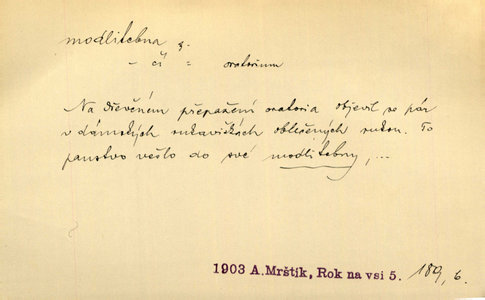 modlitebna ž.
– či = oratorium
Na dřevěném přepažení oratoria objevil se pár
v dámských rukavičkách oblečených rukou. To
panstvo vešlo do své modlitebny, ...
1903 A. Mrštík, Rok na vsi 5. 189, 6.